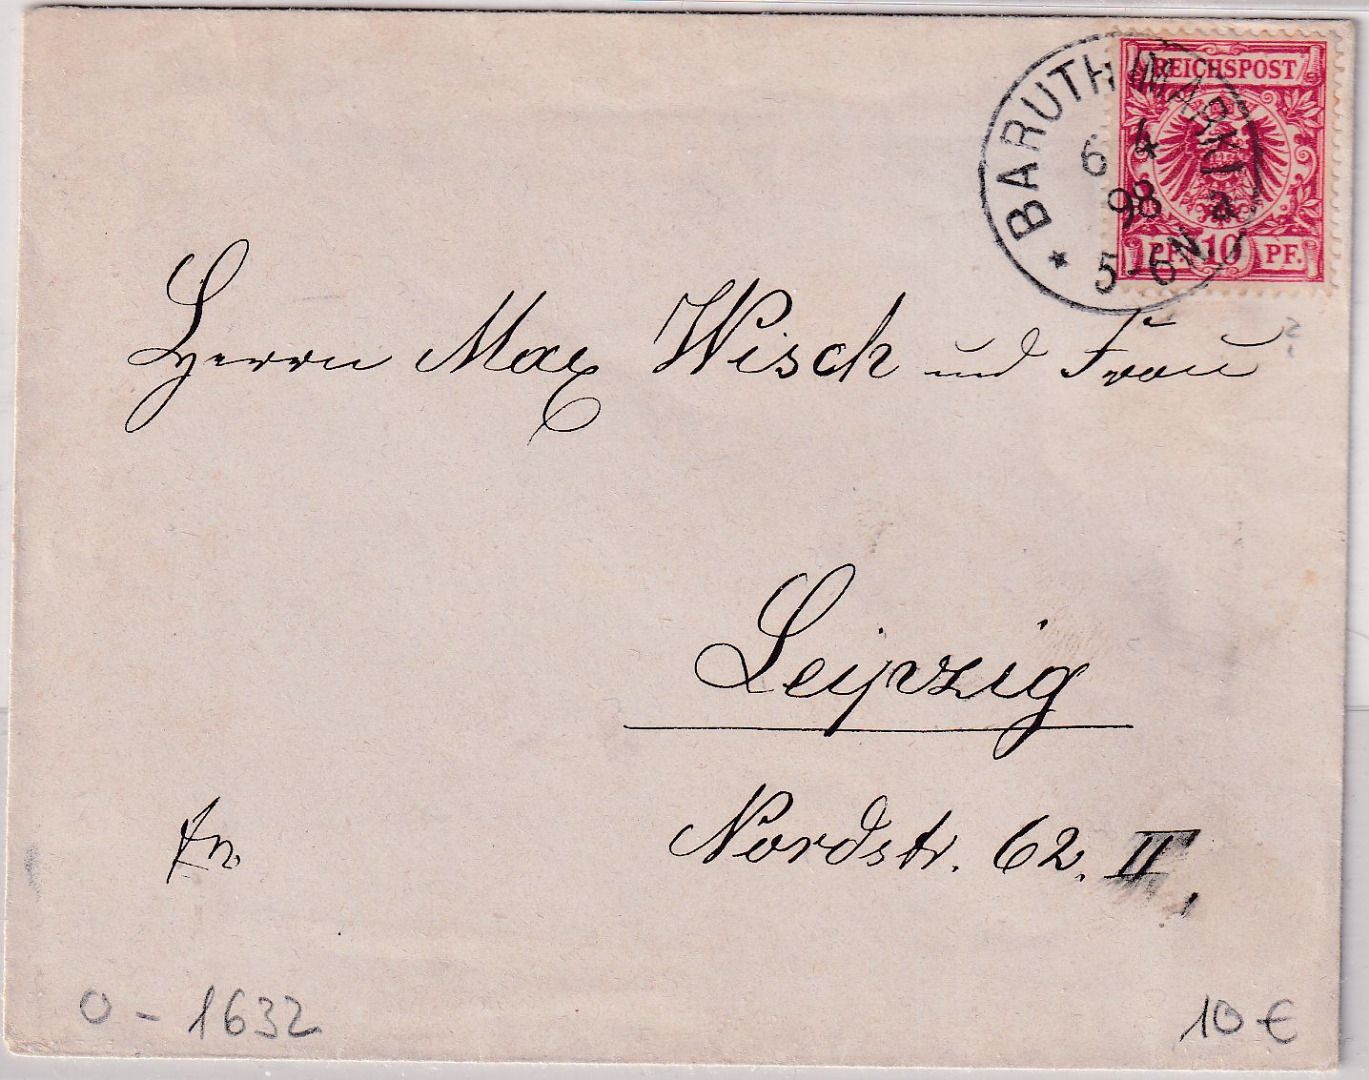 REICHSPOST
PF. 10 PF.
BARUTH (MARK)
6 4
98 a
5-6N
?
Herrn Max Wisch und Frau
Leipzig
Nordstr. 62. II
0 - 1632
10 €